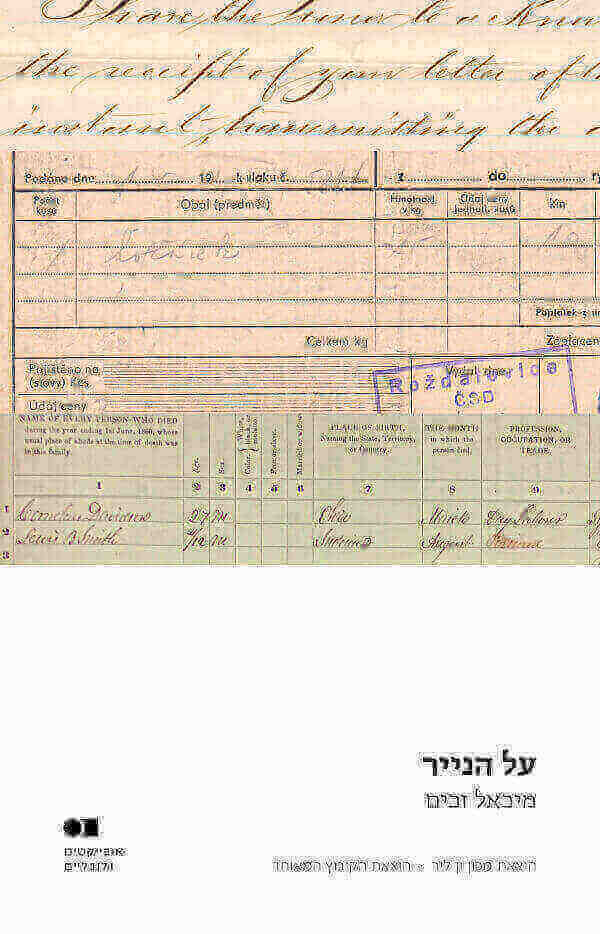 I have the honor to a
the receipt of your letter of th
instant, transmitting the
Podáno dne 19 k vlaku č.
z do
Počet kusů
Obal (předmět)
Hmotnost v kg
Údaj ceny
km
Poplatek
Celkem kg
Zaplacen
Pojištěno na (slovy) Kčs
Vydal dne
Rožďalovice
ČSD
Údaj ceny
NAME OF EVERY PERSON WHO DIED
during the year ending 1st June, 1860, whose
usual place of abode at the time of death was
in this family.
Age.
Sex.
Color. { White, black, or mulatto.
Free or slave.
Married or widowed
PLACE OF BIRTH,
Naming the State, Territory,
or Country.
THE MONTH
in which the
person died.
PROFESSION,
OCCUPATION, OR
TRADE.
1 2 3 4 5 6 7 8 9
1 27 M Ohio March
2 Smith M August
3
על הנייר
מיכאל זכים
אובייקטים
גלובליים
הוצאת מכון ון ליר – הוצאת הקיבוץ המאוחד